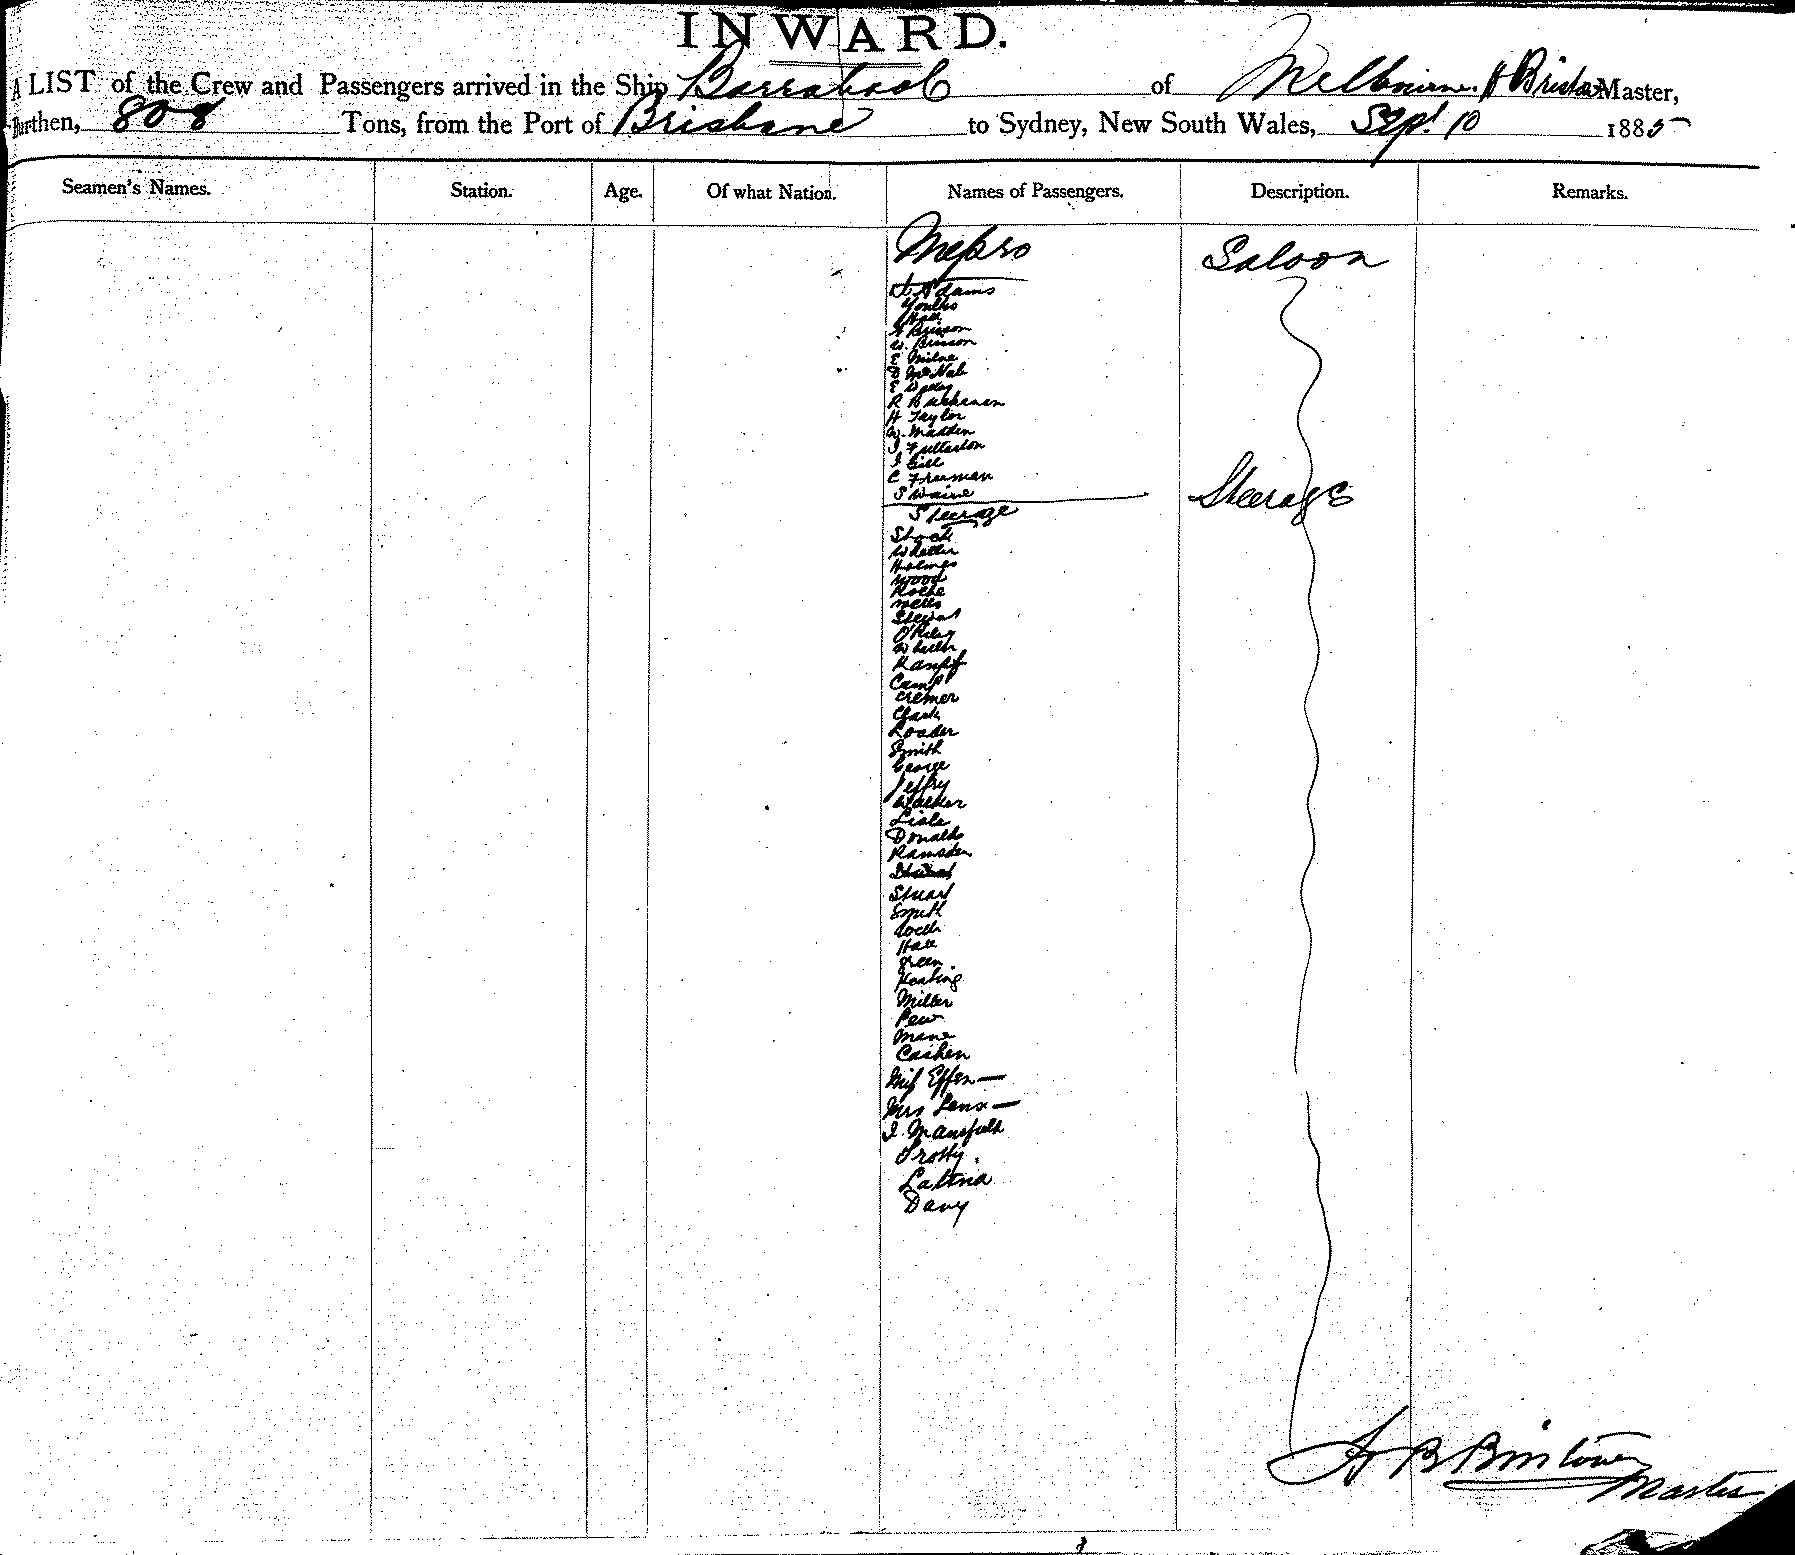 INWARD.
A LIST of the Crew and Passengers arrived in the Ship Barrabool of Melbourne. H Bristow Master,
Burthen, 808 Tons, from the Port of Brisbane to Sydney, New South Wales, Sept 10 1885
Seamen's Names. Station. Age. Of what Nation. Names of Passengers. Description. Remarks.
Messrs Saloon
Adams
Hall
Brisson
W. Brisson
E Milne
D McNab
E
R Buchanan
H Taylor
W. Madden
J Fullarton
J Gill
C Freeman
S Waine
Steerage Steerage
Holmes
Wood
Roche
Wells
Stewart
O'Riley
Kampf
Camp
Cremer
Clark
Loader
Smith
George
Jeffry
Walker
Lisle
Donalds
Ramsden
Stuart
Smith
Hall
Green
Keating
Miller
Pew
Mane
Cashen
Miss Effen —
Mrs Lena —
J. Mansfield
Trotty.
Davy
H B Bristow
Master